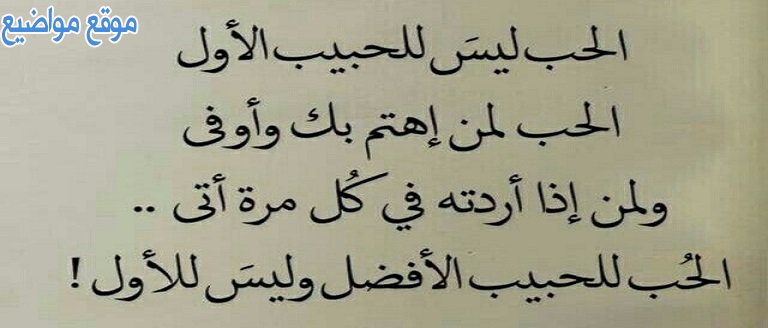 موقع مواضيع
الحب ليسَ للحبيب الأول
الحب لمن إهتم بك وأوفى
ولمن إذا أردته في كُل مرة أتى ..
الحُب للحبيب الأفضل وليسَ للأول !